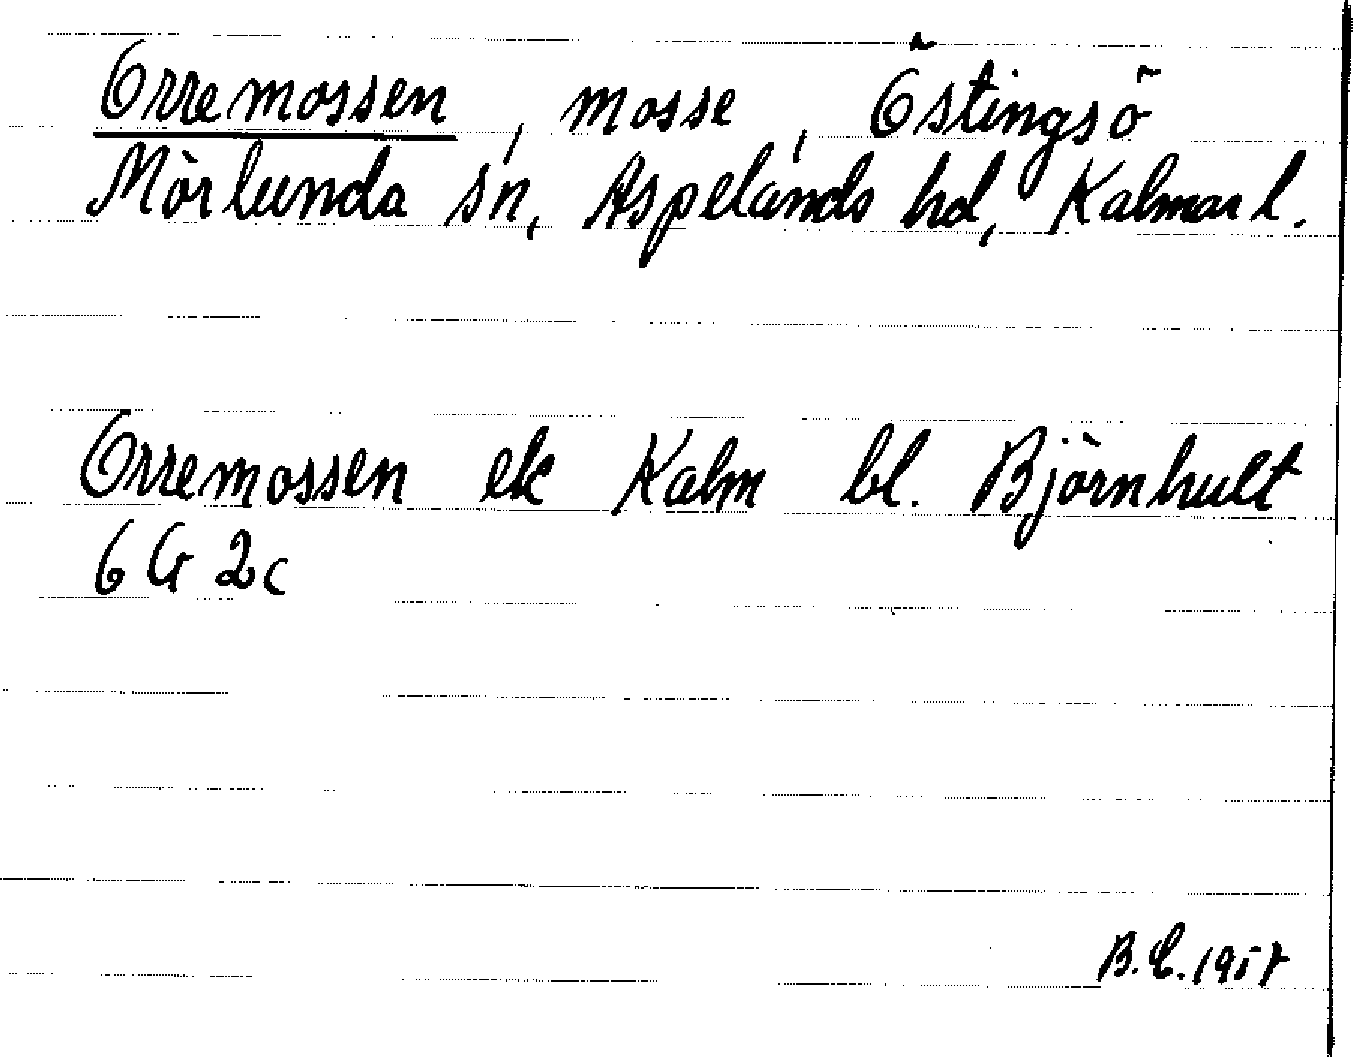 Orremossen, mosse, Östingsö
Mörlunda sn, Aspelands hd, Kalmar l.
Orremossen ek Kalm bl. Björnhult
6 G 2c
B.E. 1957